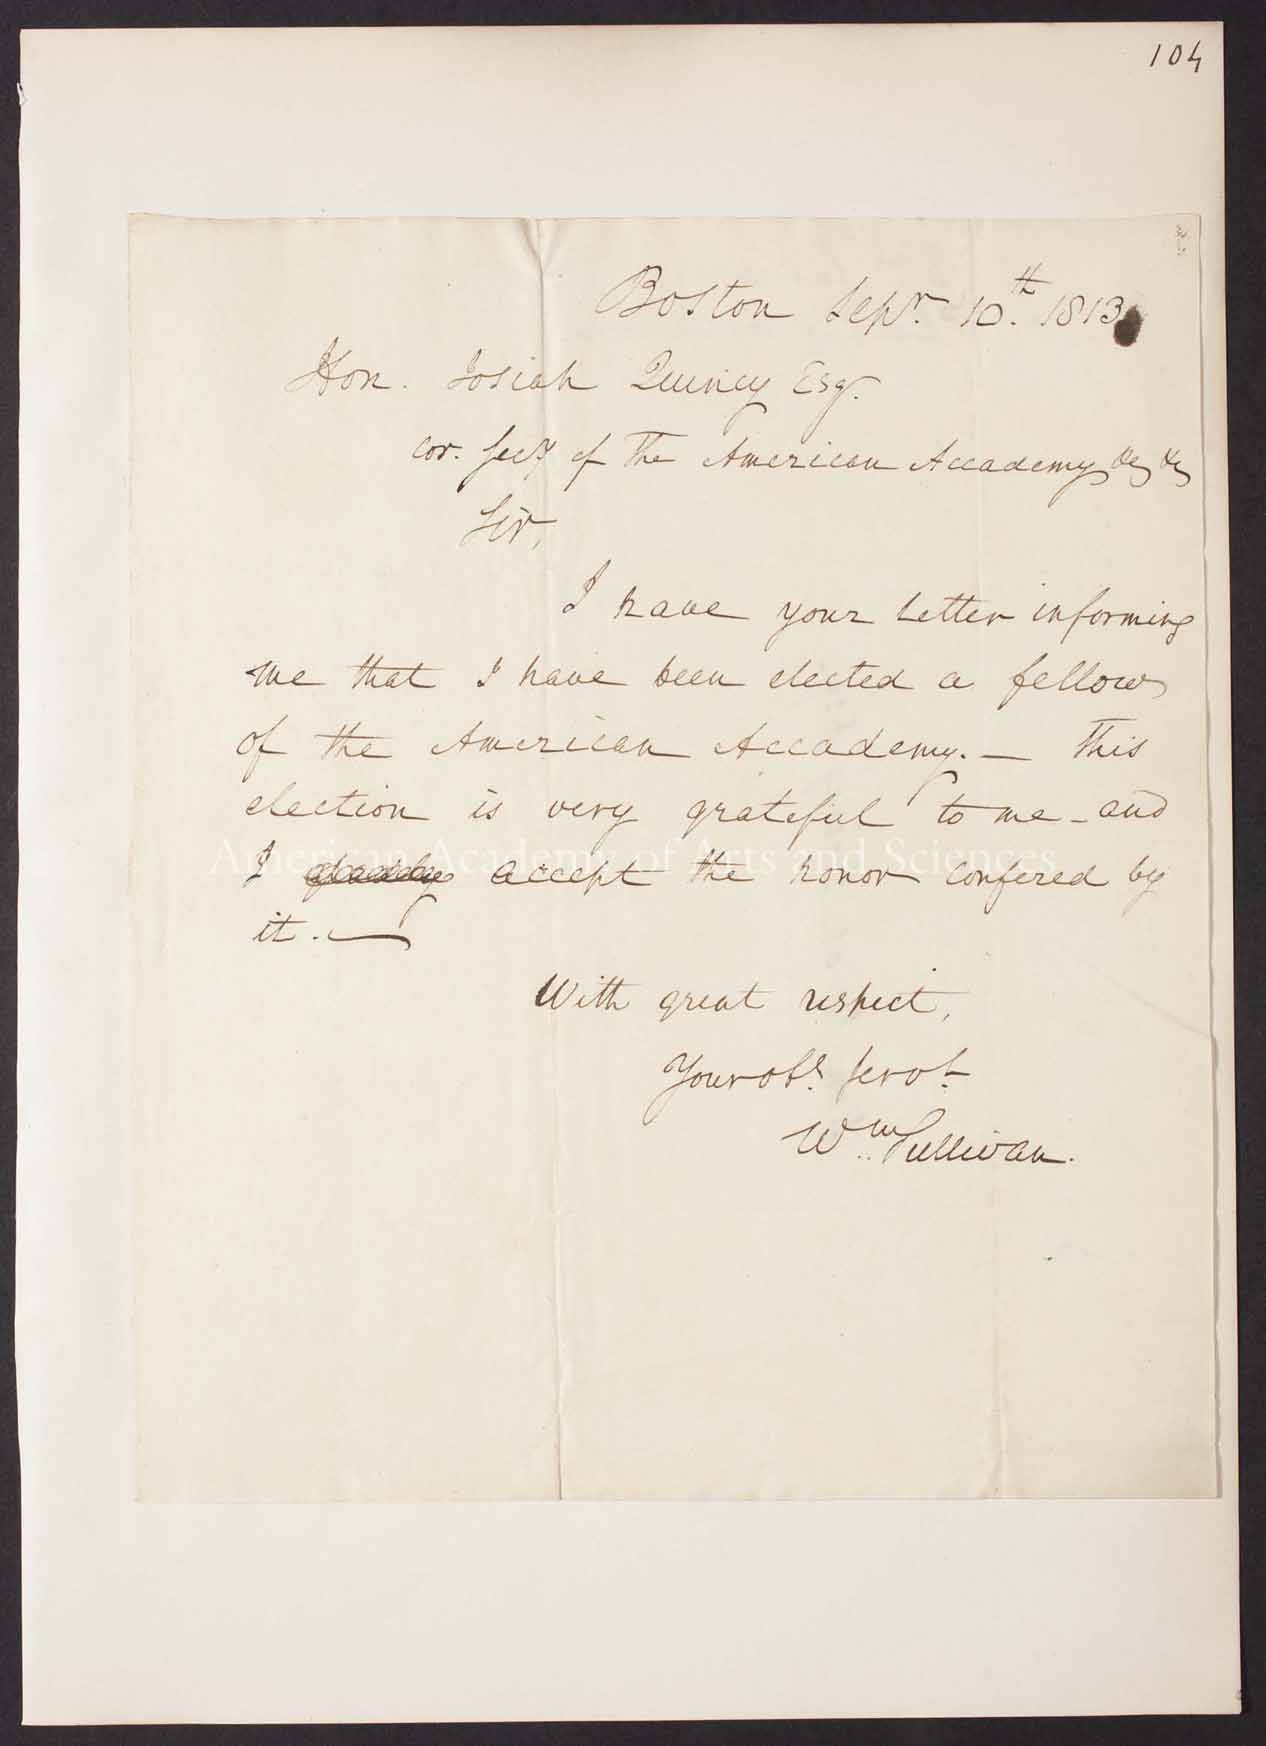 104
Boston Sepr. 10th. 1813
Hon. Josiah Quincy Esq.
cor. Secy of the American Accademy &c &c
Sir,
I have your letter informing
me that I have been elected a fellow
of the American Accademy. — This
election is very grateful to me - and
American Academy of Arts and Sciences
I accept the honor confered by
it. —
With great respect,
Your obt. Servt.
Wm. Sullivan.